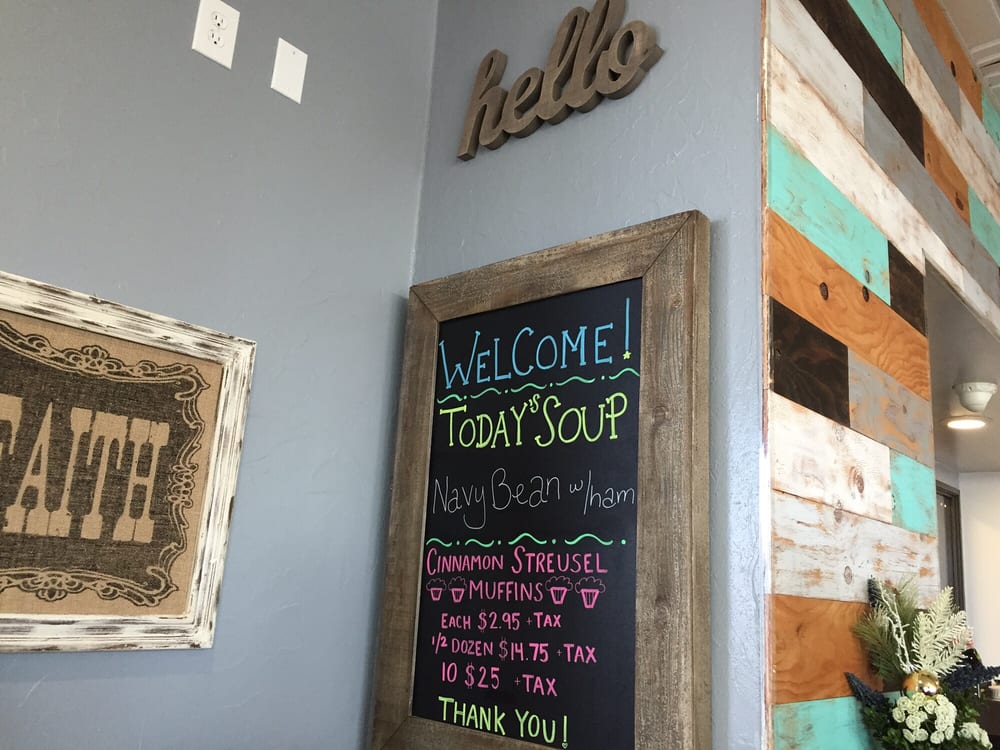 hello
FAITH
WELCOME!
TODAY'S SOUP
Navy Bean w/ham
CINNAMON STREUSEL
MUFFINS
EACH $2.95 +TAX
1/2 DOZEN $14.75 +TAX
10 $25 +TAX
THANK YOU!